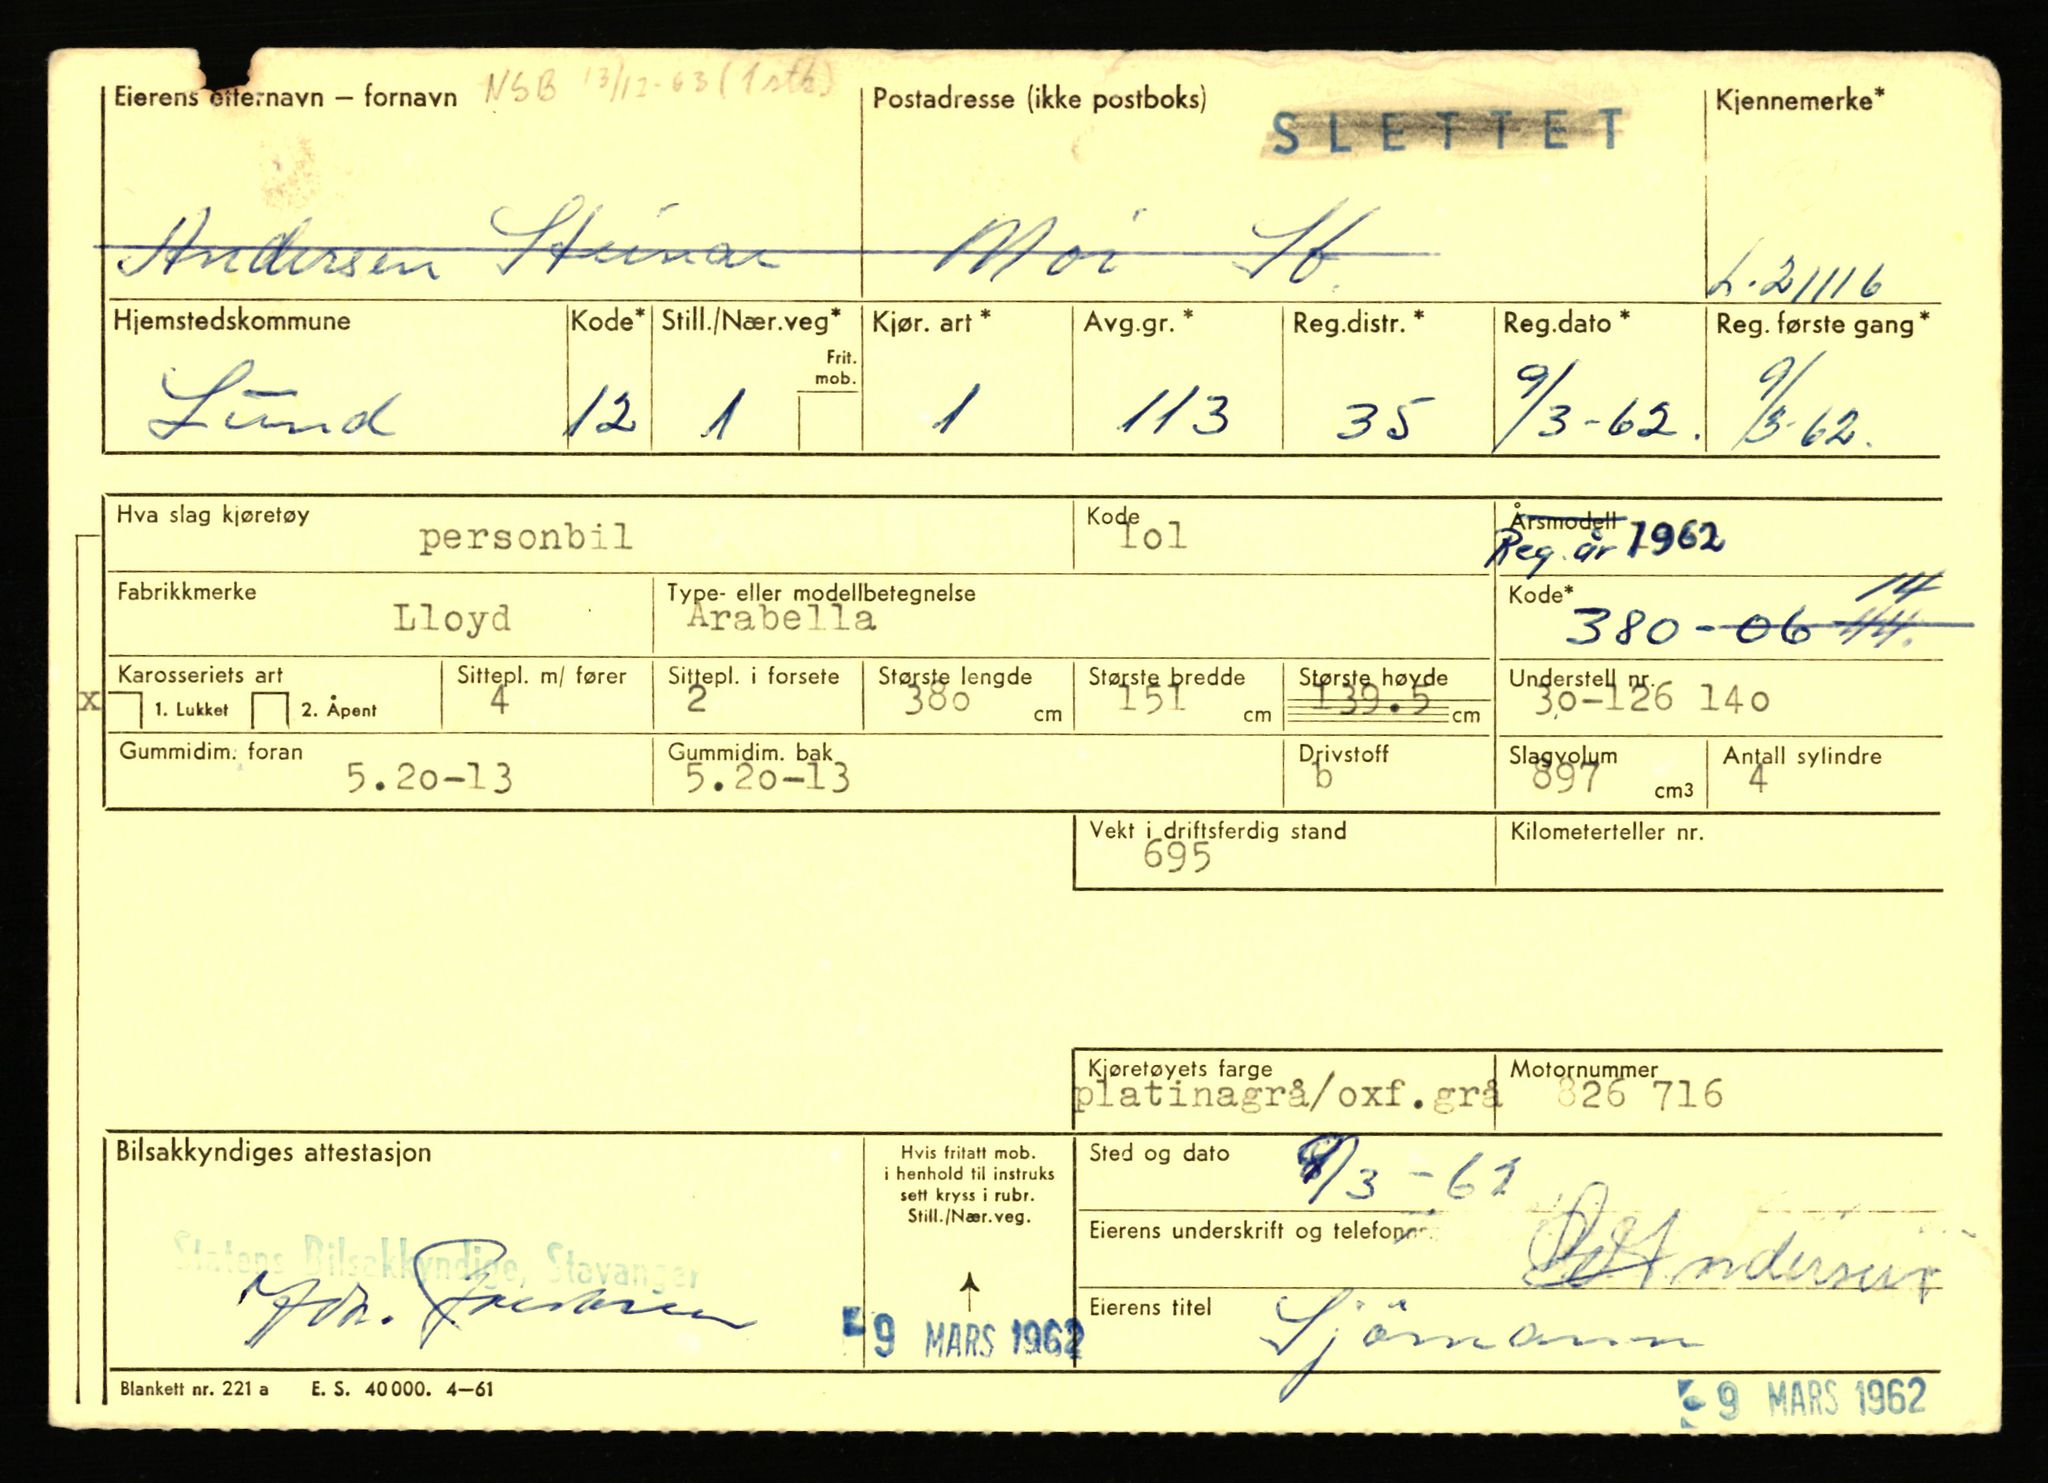 NSB 13/12-63 (1 stk)
Eierens etternavn – fornavn Postadresse (ikke postboks) Kjennemerke*
SLETTET
Andersen Steinar Moi St. L-21116
Hjemstedskommune Kode* Still./Nær.veg* Kjør. art* Avg.gr.* Reg.distr.* Reg.dato* Reg. første gang*
Frit.
mob.
Lund 12 1 1 113 35 9/3-62. 9/3-62.
Hva slag kjøretøy Kode Årsmodell
personbil 1o1 Reg. år 1962
Fabrikkmerke Type- eller modellbetegnelse Kode* 14
Lloyd Arabella 380-06 44.
Karosseriets art Sittepl. m/ fører Sittepl. i forsete Største lengde Største bredde Største høyde Understell nr.
x 1. Lukket 2. Åpent 4 2 38o cm 151 cm 139.5 cm 3o-126 14o
Gummidim. foran Gummidim. bak Drivstoff Slagvolum Antall sylindre
5.2o-13 5.2o-13 b 897 cm3 4
Vekt i driftsferdig stand Kilometerteller nr.
695
Kjøretøyets farge Motornummer
platinagrå/oxf.grå 826 716
Bilsakkyndiges attestasjon Hvis fritatt mob. Sted og dato 9/3-62
i henhold til instruks
sett kryss i rubr.
Still./Nær.veg.
Eierens underskrift og telefonnr. Andersen
Statens Bilsakkyndige, Stavanger
Eierens titel Sjömann
-9 MARS 1962
Blankett nr. 221 a E. S. 40 000. 4–61
-9 MARS 1962